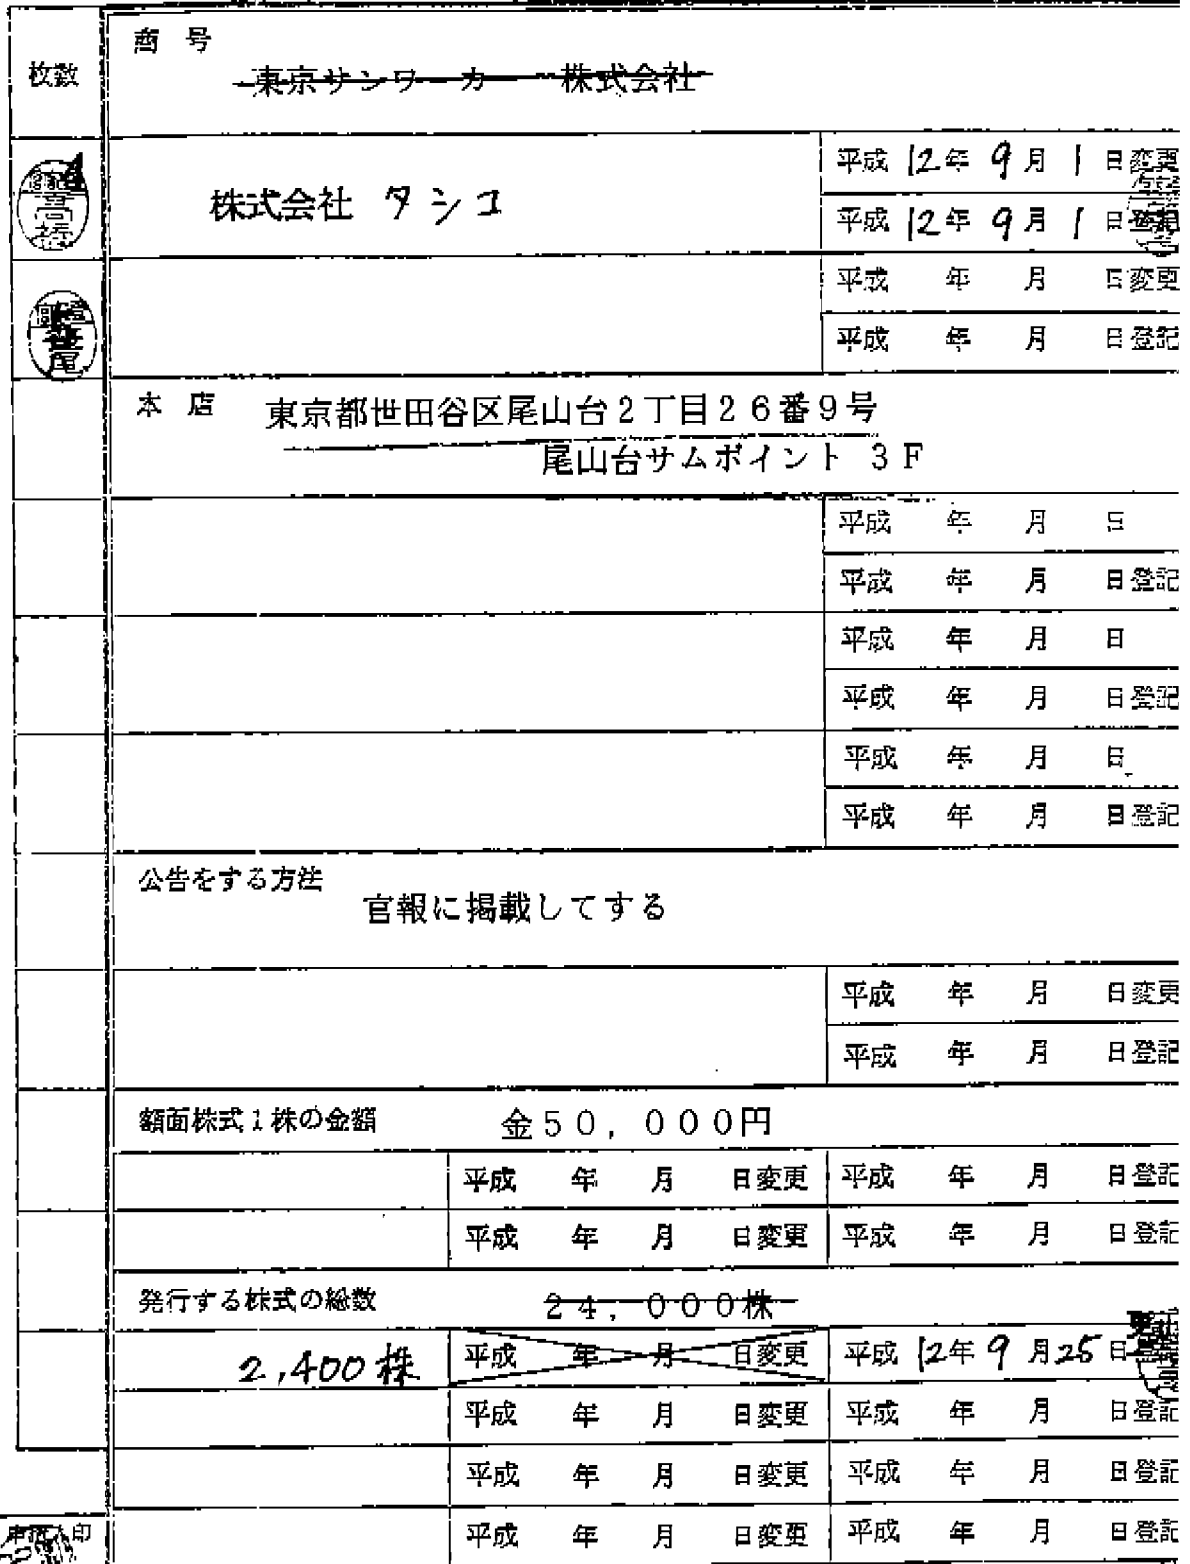 枚数
商号
東京サンワーカー 株式会社
株式会社 タシコ
平成12年9月1日変更
平成12年9月1日登記
平成 年 月 日変更
平成 年 月 日登記
高橋
本店
東京都世田谷区尾山台2丁目26番9号
尾山台サムポイント 3F
平成 年 月 日
平成 年 月 日登記
平成 年 月 日
平成 年 月 日登記
平成 年 月 日
平成 年 月 日登記
公告をする方法
官報に掲載してする
平成 年 月 日変更
平成 年 月 日登記
額面株式1株の金額 金50,000円
平成 年 月 日変更 平成 年 月 日登記
平成 年 月 日変更 平成 年 月 日登記
発行する株式の総数 24,000株
2,400株 平成 年 月 日変更 平成12年9月25日
平成 年 月 日変更 平成 年 月 日登記
平成 年 月 日変更 平成 年 月 日登記
平成 年 月 日変更 平成 年 月 日登記